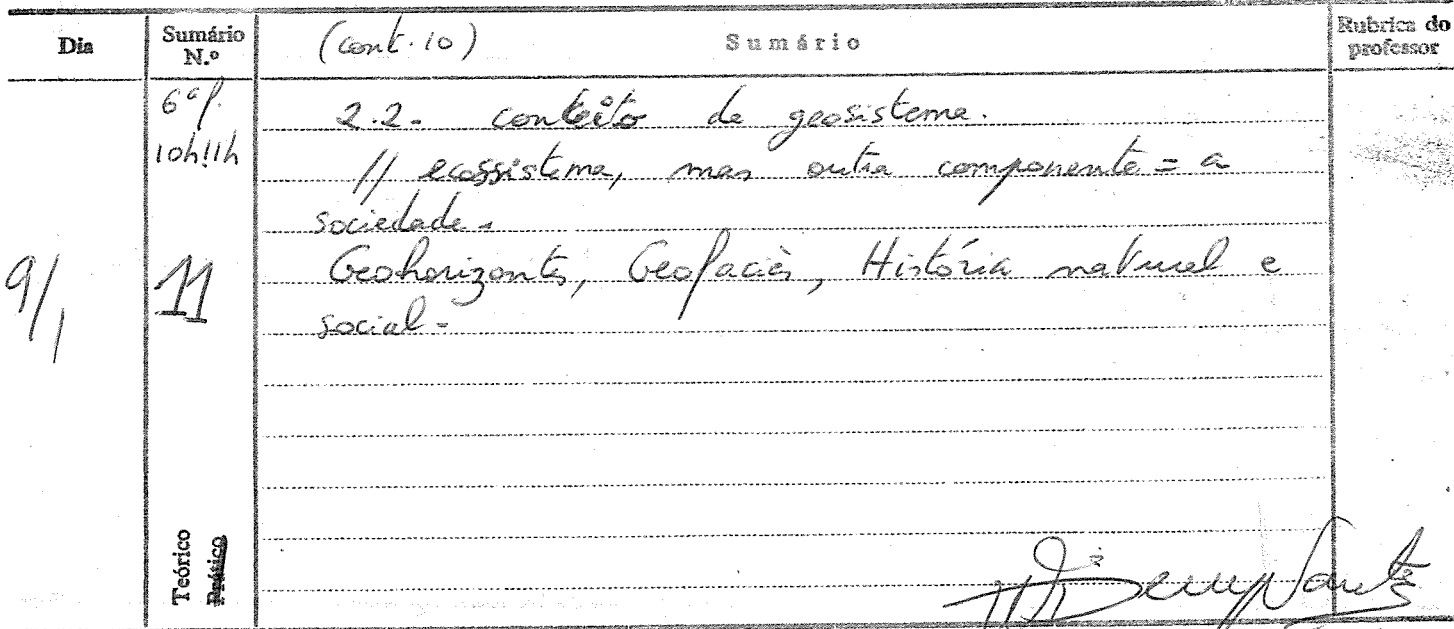 Dia
Sumário N.º
(cont. 10)
Sumário
Rubrica do professor
6ª f.
10h/11h
9/1
11
2.2. conceito de geosistema.
// ecossistema, mas outra componente = a
sociedade -
Geohorizontes, Geofaciès, História natural e
social -
Teórico
Prático